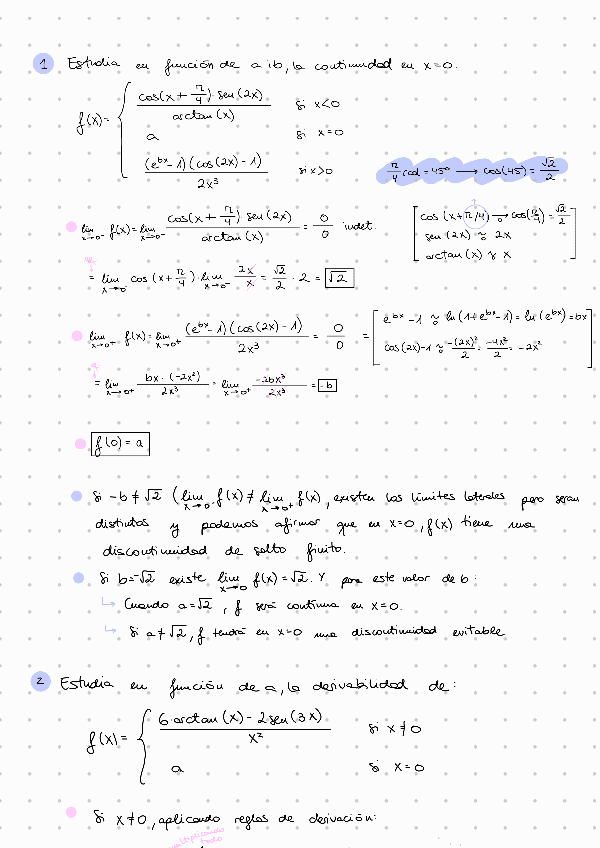 1 Estudia en función de a i b, la continuidad en x=0.
f(x)= { cos(x + π/4)·sen(2x) / arctan(x) si x<0
a si x=0
(e^bx - 1)(cos(2x) - 1) / 2x³ si x>0
π/4 rad = 45º → cos(45) = √2/2
lim x→0⁻ f(x) = lim x→0⁻ cos(x + π/4) sen(2x) / arctan(x) = 0/0 indet.
[ cos(x+π/4) →0 cos(π/4) = √2/2
sen(2x) ≈0 2x
arctan(x) ≈ x ]
= lim x→0⁻ cos(x + π/4) · lim x→0⁻ 2x/x = √2/2 · 2 = √2
lim x→0⁺ f(x) = lim x→0⁺ (e^bx - 1)(cos(2x) - 1) / 2x³ = 0/0 =
[ e^bx - 1 ≈0 ln(1+e^bx - 1) = ln(e^bx) = bx
cos(2x) - 1 ≈0 -(2x)²/2 = -4x²/2 = -2x² ]
= lim x→0⁺ bx·(-2x²) / 2x³ = lim x→0⁺ -2bx³ / 2x³ = -b
f(0) = a
Si -b ≠ √2 (lim x→0⁻ f(x) ≠ lim x→0⁺ f(x), existen los límites laterales pero seran
distintos y podemos afirmar que en x=0, f(x) tiene una
discontinuidad de salto finito.
Si b=-√2 existe lim x→0 f(x) = √2. Y para este valor de b:
↳ Cuando a=√2, f será continua en x=0.
↳ Si a≠√2, f tendrá en x=0 una discontinuidad evitable
2 Estudia en función de a, la derivabilidad de:
f(x) = { 6·arctan(x) - 2sen(3x) / x² si x≠0
a si x=0
Si x≠0, aplicando reglas de derivación:
multiplicando
todo